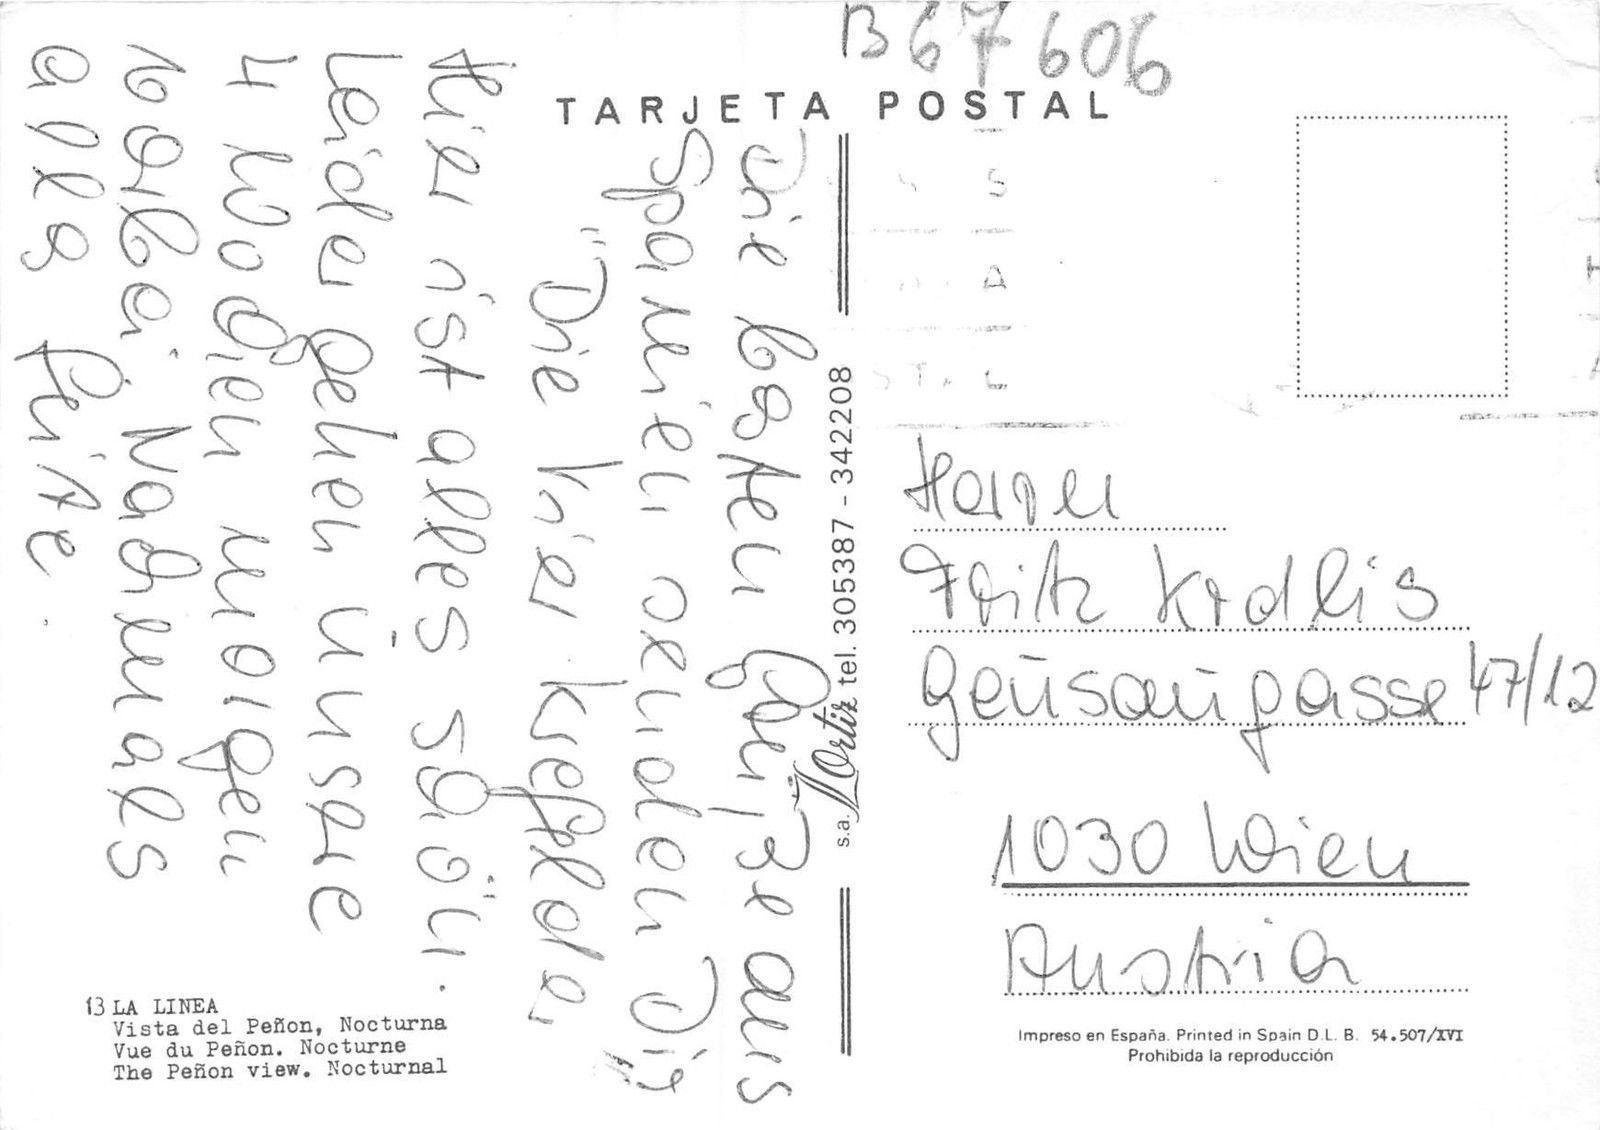 B 67606
TARJETA POSTAL
Die besten Grüße aus
Spanien senden Dir
"Die Vier Krefelder,
Hier ist alles schön.
Leider gehen unsre
4 Wochen morgen
vorbei. Nochmals
alles Gute.
s.a. Ortiz tel. 305387 - 342208
Herrn
Fritz Kralis
Geusaugasse 47/12
1030 Wien
Austria
13 LA LINEA
Vista del Peñon, Nocturna
Vue du Peñon. Nocturne
The Peñon view. Nocturnal
Impreso en España. Printed in Spain D.L. B. 54.507/XVI
Prohibida la reproducción